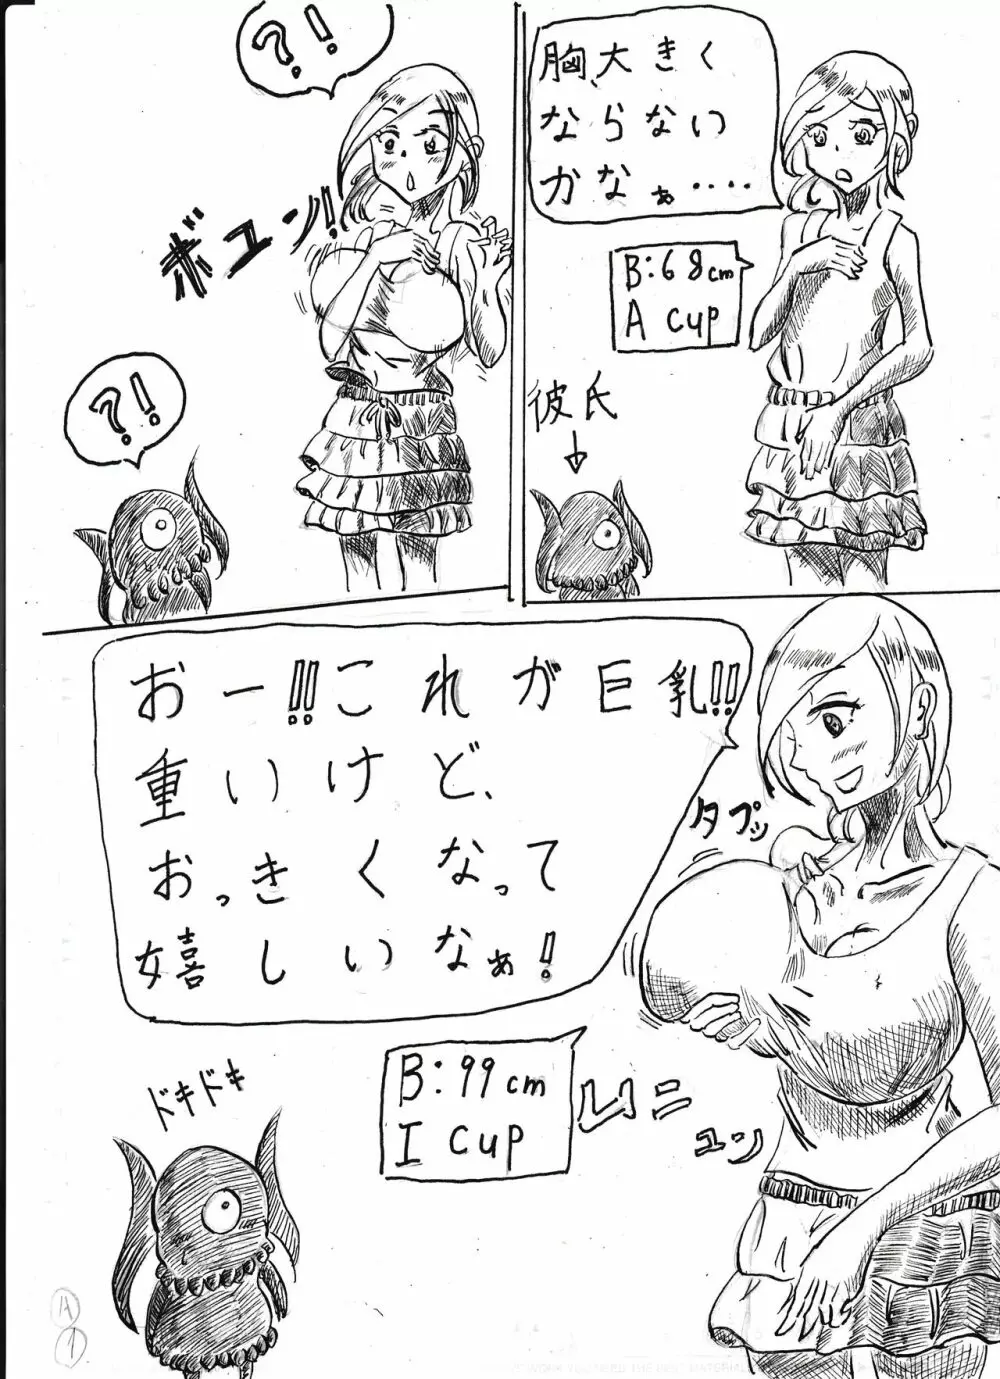 胸、大きく
ならない
かなぁ‥‥
B:68cm
A cup
彼氏
?!
ボユン!!
?!
おー!!!これが巨乳!!
重いけど、
おっきくなって
嬉しいなぁ!
タプッ
B:99cm
I cup
ムニ
ユン
ドキドキ
A
1